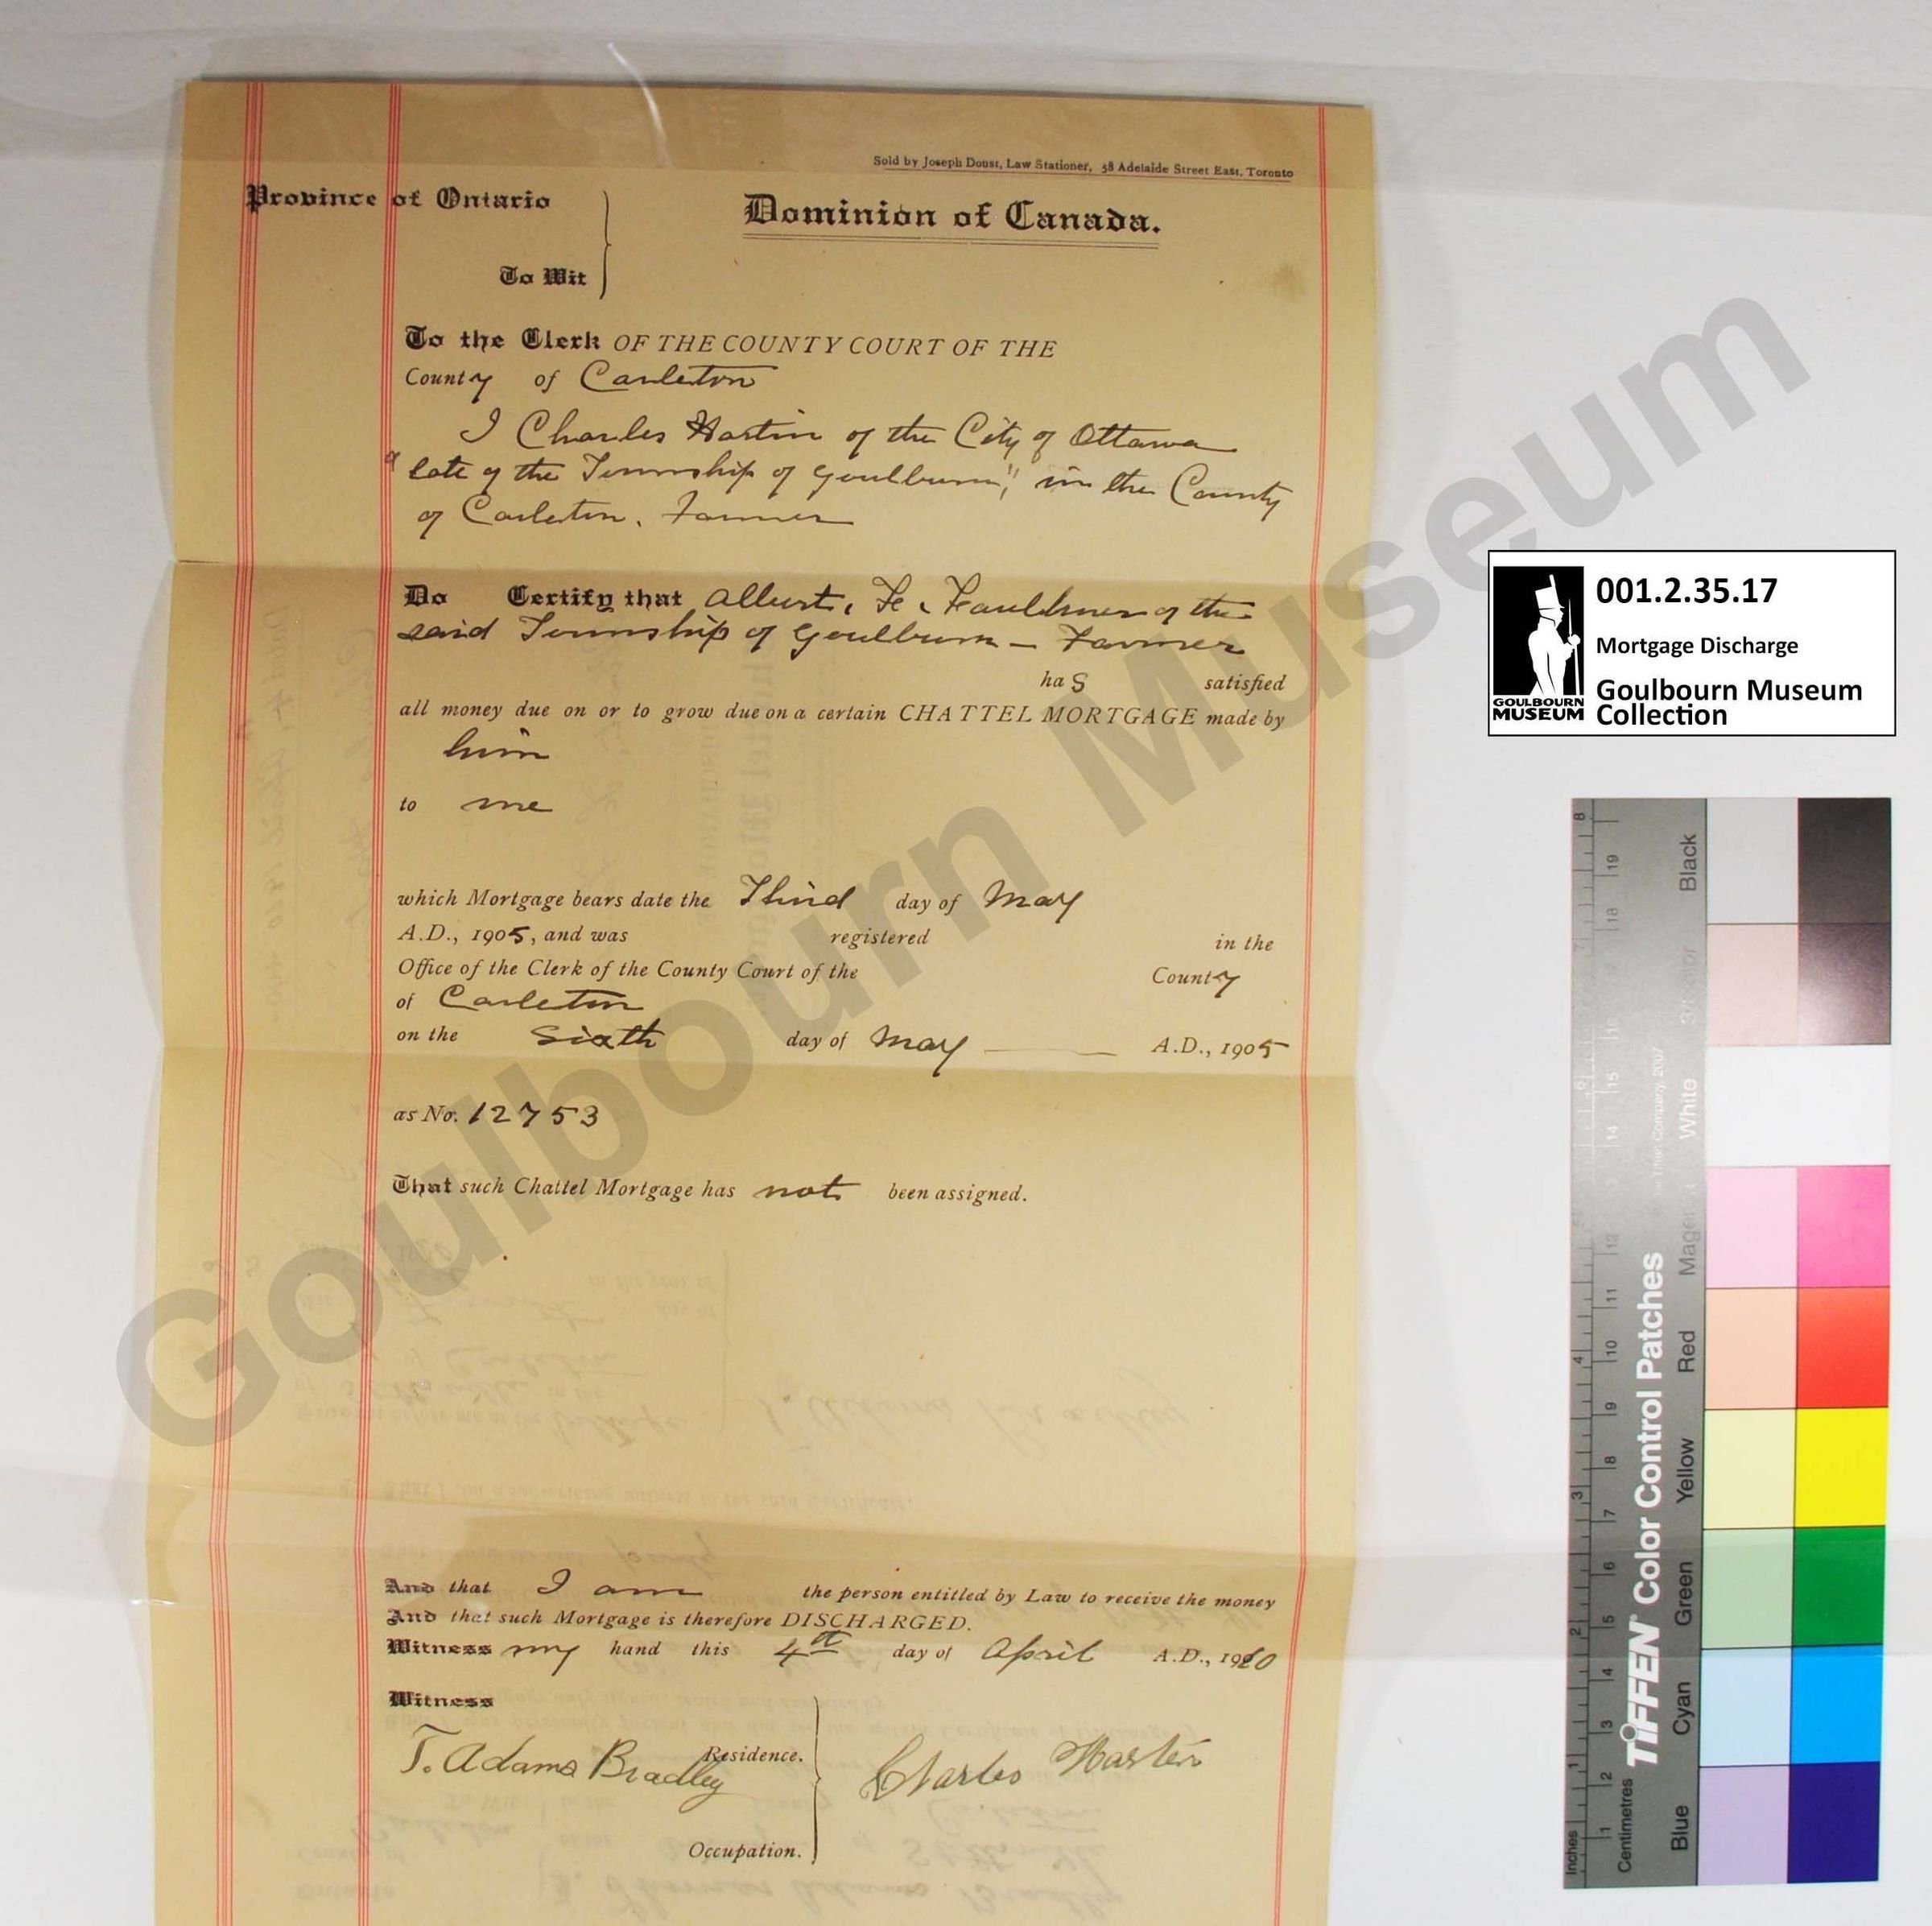 Sold by Joseph Doust, Law Stationer, 58 Adelaide Street East, Toronto
Province of Ontario
Dominion of Canada.
To Wit
To the Clerk OF THE COUNTY COURT OF THE
County of Carleton
I Charles Hartin of the City of Ottawa
"late of the Township of Goulburn", in the County
of Carleton. Farmer
Do Certify that Albert. Fe. Faulkner of the
said Township of Goulburn - Farmer
has satisfied
all money due on or to grow due on a certain CHATTEL MORTGAGE made by
him
to me
which Mortgage bears date the Third day of May
A.D., 1905, and was registered in the
Office of the Clerk of the County Court of the County
of Carleton
on the Sixth day of May A.D., 1905
as No. 12753
That such Chattel Mortgage has not been assigned.
And that I am the person entitled by Law to receive the money
And that such Mortgage is therefore DISCHARGED.
Witness my hand this 4th day of April A.D., 1910
Witness
T. Adams Bradley
Residence.
Charles Hartin
Occupation.
Goulbourn Museum
001.2.35.17
Mortgage Discharge
Goulbourn Museum
Collection
GOULBOURN
MUSEUM
TIFFEN Color Control Patches
Inches
Centimetres
Blue
Cyan
Green
Yellow
Red
White
Black